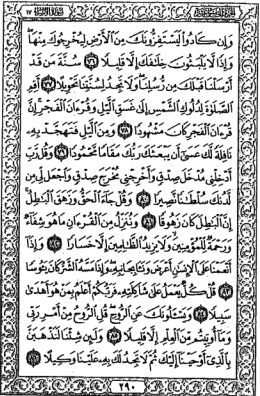 وَإِن كَادُوا۟ لَيَسْتَفِزُّونَكَ مِنَ ٱلْأَرْضِ لِيُخْرِجُوكَ مِنْهَا ۖ
وَإِذًا لَّا يَلْبَثُونَ خِلَـٰفَكَ إِلَّا قَلِيلًا ٧٦ سُنَّةَ مَن قَدْ
أَرْسَلْنَا قَبْلَكَ مِن رُّسُلِنَا ۖ وَلَا تَجِدُ لِسُنَّتِنَا تَحْوِيلًا ٧٧ أَقِمِ
ٱلصَّلَوٰةَ لِدُلُوكِ ٱلشَّمْسِ إِلَىٰ غَسَقِ ٱلَّيْلِ وَقُرْءَانَ ٱلْفَجْرِ ۖ إِنَّ
قُرْءَانَ ٱلْفَجْرِ كَانَ مَشْهُودًا ٧٨ وَمِنَ ٱلَّيْلِ فَتَهَجَّدْ بِهِۦ
نَافِلَةً لَّكَ عَسَىٰٓ أَن يَبْعَثَكَ رَبُّكَ مَقَامًا مَّحْمُودًا ٧٩ وَقُل رَّبِّ
أَدْخِلْنِى مُدْخَلَ صِدْقٍ وَأَخْرِجْنِى مُخْرَجَ صِدْقٍ وَٱجْعَل لِّى مِن
لَّدُنكَ سُلْطَـٰنًا نَّصِيرًا ٨٠ وَقُلْ جَآءَ ٱلْحَقُّ وَزَهَقَ ٱلْبَـٰطِلُ ۚ
إِنَّ ٱلْبَـٰطِلَ كَانَ زَهُوقًا ٨١ وَنُنَزِّلُ مِنَ ٱلْقُرْءَانِ مَا هُوَ شِفَآءٌ
وَرَحْمَةٌ لِّلْمُؤْمِنِينَ ۙ وَلَا يَزِيدُ ٱلظَّـٰلِمِينَ إِلَّا خَسَارًا ٨٢ وَإِذَآ
أَنْعَمْنَا عَلَى ٱلْإِنسَـٰنِ أَعْرَضَ وَنَـَٔا بِجَانِبِهِۦ ۖ وَإِذَا مَسَّهُ ٱلشَّرُّ كَانَ يَـُٔوسًا
٨٣ قُلْ كُلٌّ يَعْمَلُ عَلَىٰ شَاكِلَتِهِۦ فَرَبُّكُمْ أَعْلَمُ بِمَنْ هُوَ أَهْدَىٰ
سَبِيلًا ٨٤ وَيَسْـَٔلُونَكَ عَنِ ٱلرُّوحِ ۖ قُلِ ٱلرُّوحُ مِنْ أَمْرِ رَبِّى
وَمَآ أُوتِيتُم مِّنَ ٱلْعِلْمِ إِلَّا قَلِيلًا ٨٥ وَلَئِن شِئْنَا لَنَذْهَبَنَّ
بِٱلَّذِىٓ أَوْحَيْنَآ إِلَيْكَ ثُمَّ لَا تَجِدُ لَكَ بِهِۦ عَلَيْنَا وَكِيلًا ٨٦
٢٩٠